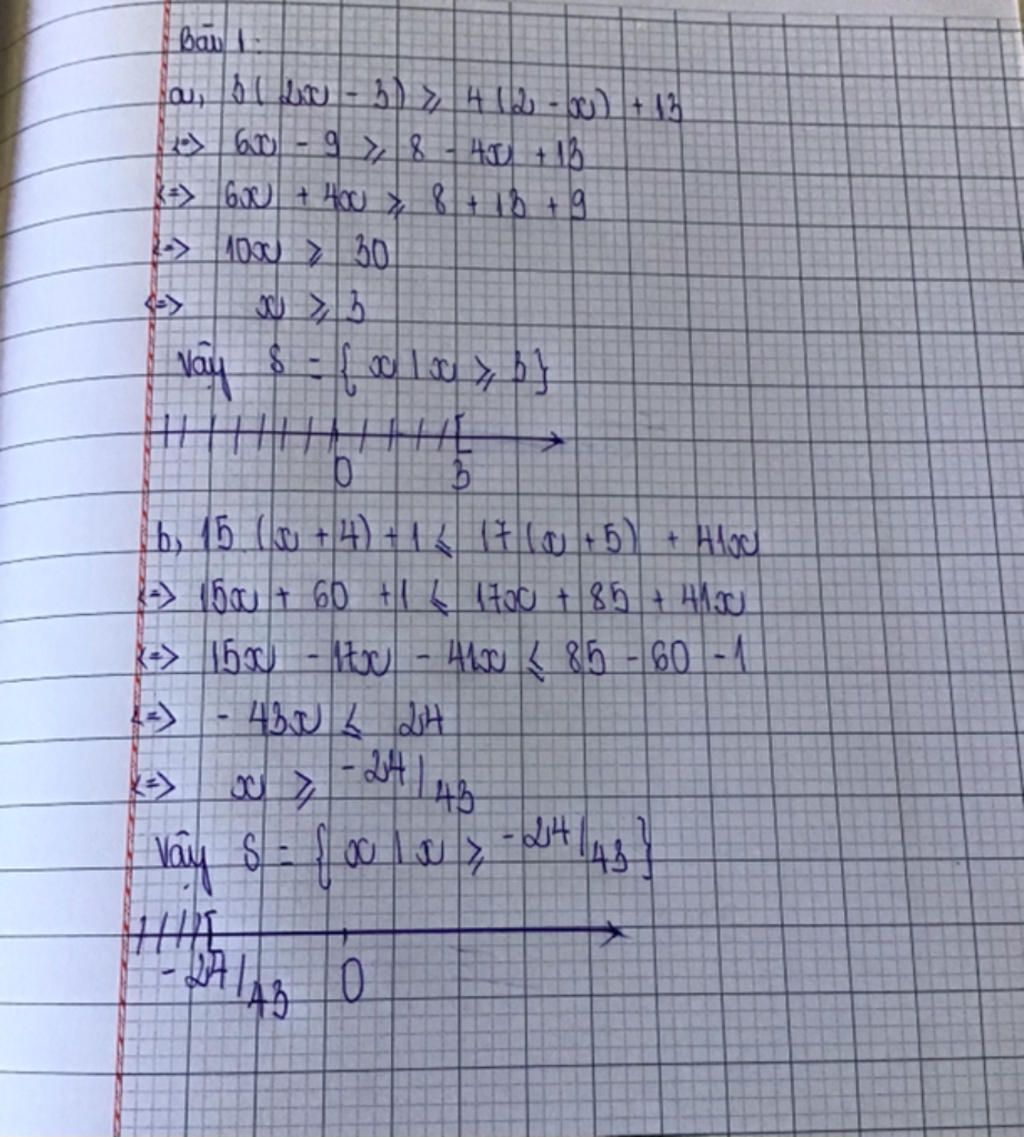 Bài 1.
a, 3(2x - 3) ≥ 4(2 - x) + 13
<=> 6x - 9 ≥ 8 - 4x + 13
<=> 6x + 4x ≥ 8 + 13 + 9
<=> 10x ≥ 30
<=> x ≥ 3
Vậy S = {x | x ≥ 3}
0 3
b, 15 (x + 4) + 1 ≤ 17(x + 5) + 41x
<=> 15x + 60 + 1 ≤ 17x + 85 + 41x
<=> 15x - 17x - 41x ≤ 85 - 60 - 1
<=> - 43x ≤ 24
<=> x ≥ -24/43
Vậy S = {x | x ≥ -24/43}
-24/43 0